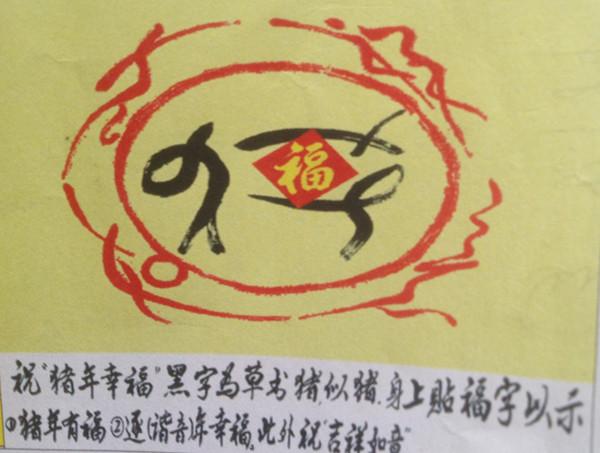 福
祝"猪年幸福"黑字为草书猪,似猪,身上贴福字以示
①猪年有福②逐(谐音)年幸福,此外祝"吉祥如音"